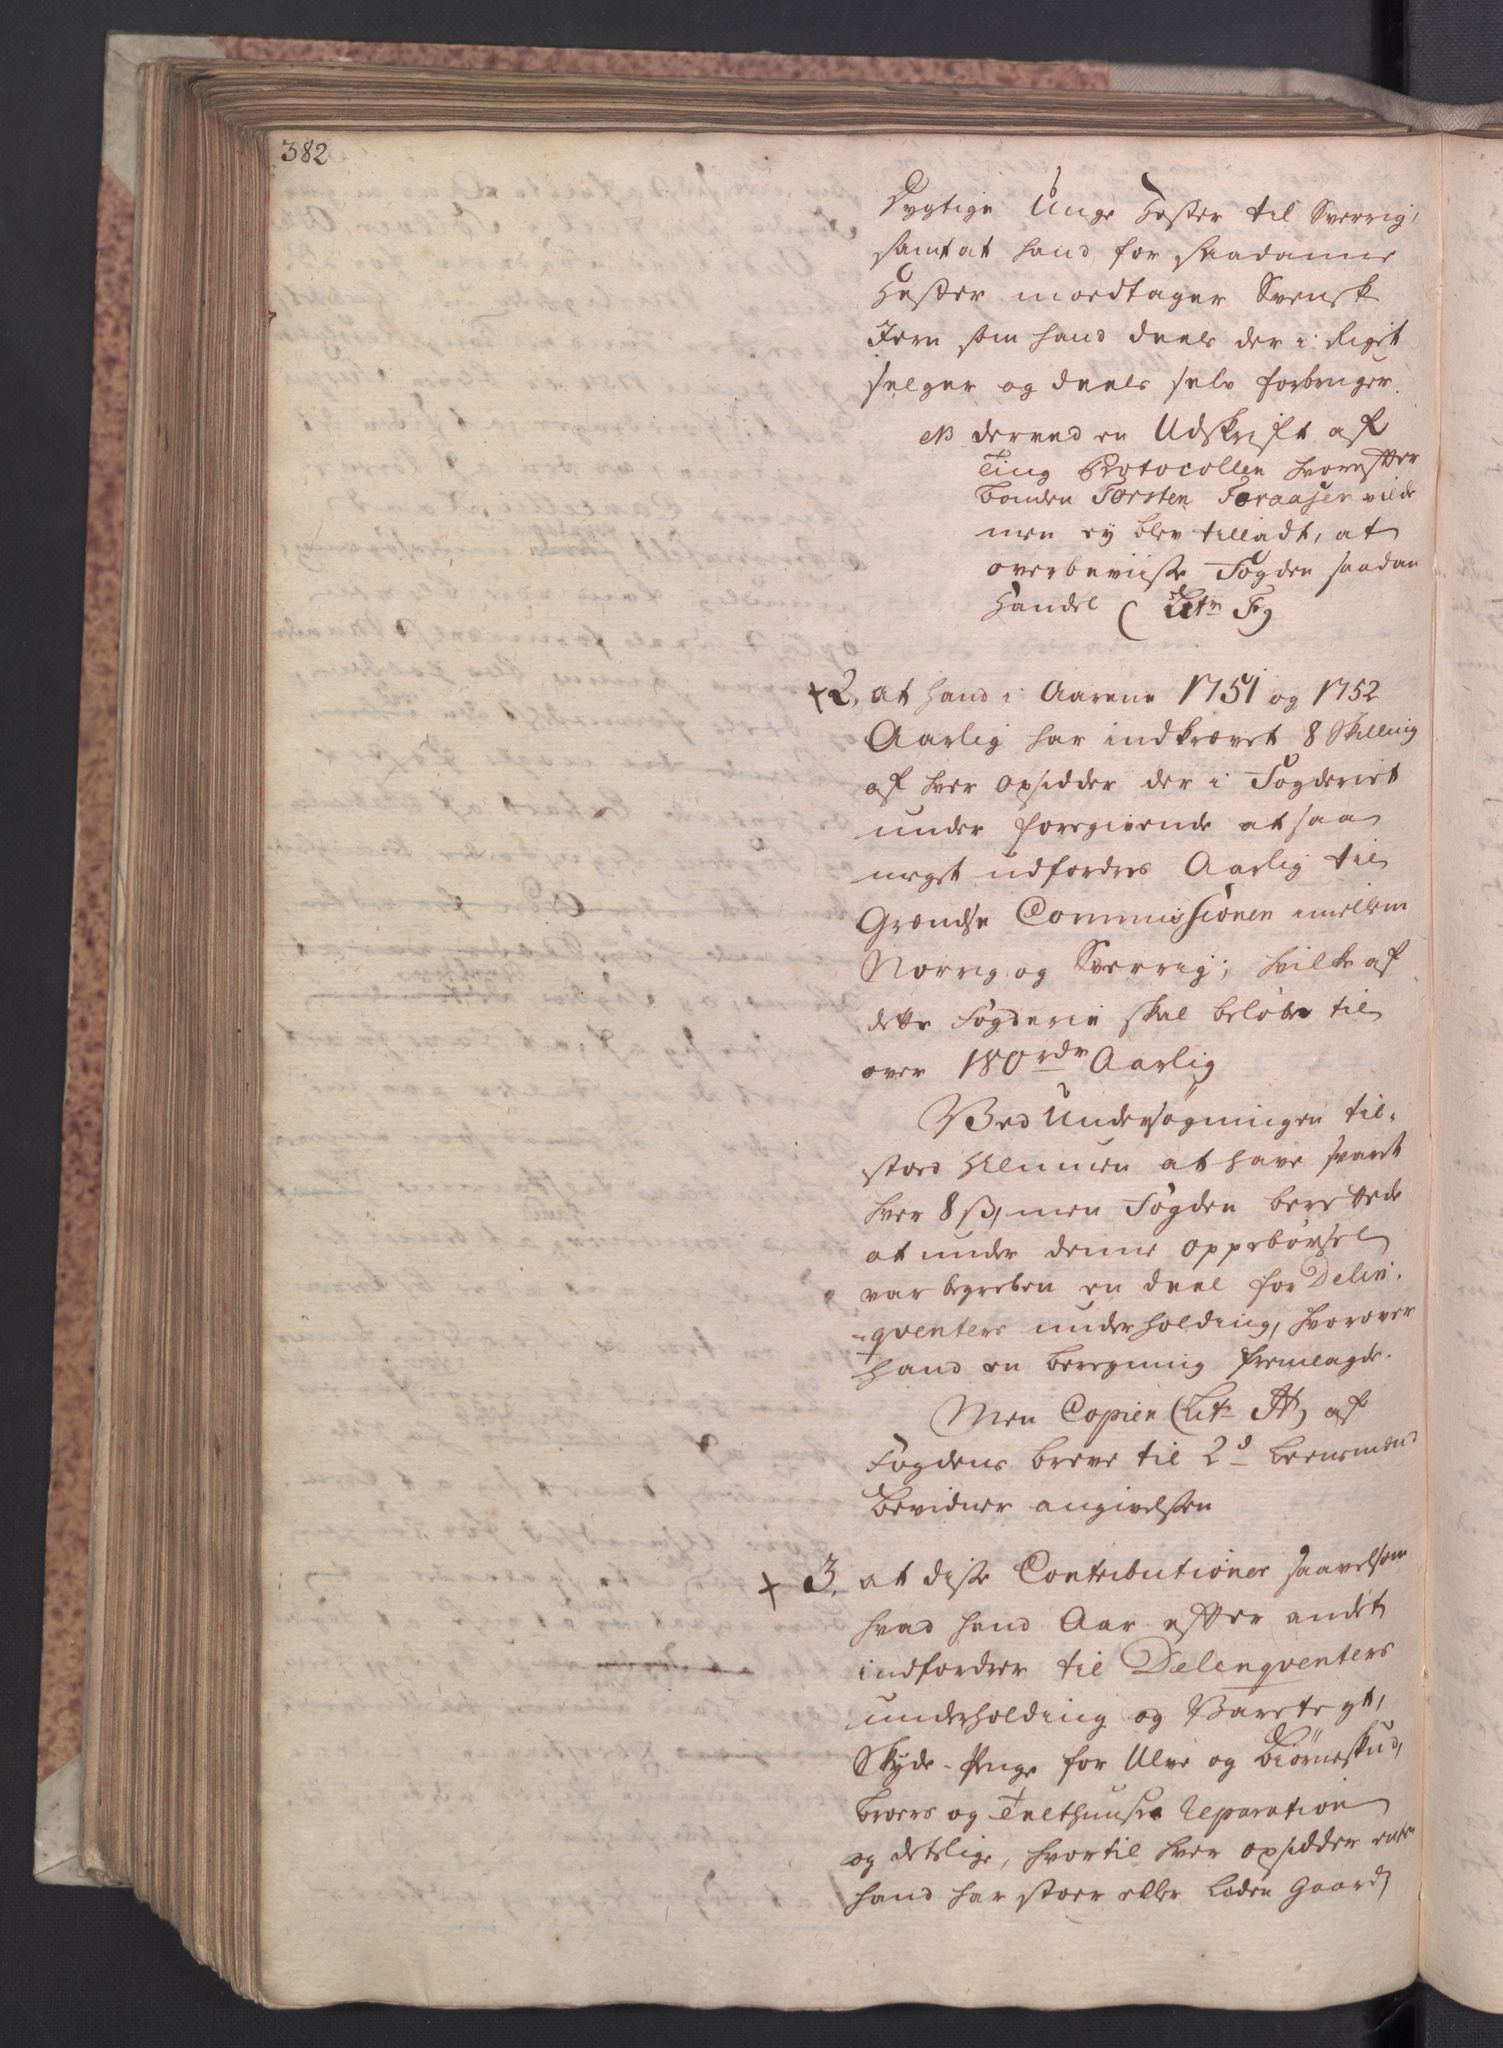 382
Dygtige Unge Hester til Sverrig,
samt at hand for saadanne
Hester modtager Svensk
Jern som hand deels der i Riget
selger og deels selv forbruger.
NB derved en Udskrift af
Ting Protocollen hvorefter
bonden Torsten Foraaser vilde
men ey blev tilladt, at
overbeviise Fogden saadan
Handel (Litr F)
+ 2, at hand i Aarene 1751 og 1752
Aarlig har indkrævet 8 Skilling
af hver opsidder der i Fogderiet
under foregivende at saa
meget udfordres Aarlig til
Grændse Commissionen imellem
Norrig og Sverrig; hvilke af
dette Fogderie skal beløbe til
over 180 rdr Aarlig
Ved Undersøgningen til-
stoed Almuen at have svaret
hver 8 ß, men Fogden berettede
at under denne oppebørsel
var begreben en deel for Delin-
-qventers underholding, hvorover
hand en beregning fremlagde.
Men Copien (Litr H) af
Fogdens breve til 2de Leensmænd
bevidner angivelsen
+ 3, at disse Contributioner saavelsom
hvad hand Aar efter andet
indfordrer til Delinqventers
underholding og Varetegt,
Skyde-Penge for Ulve og Biørneskud,
broers og Telthuuse Reparation
og deslige, hvortil hver opsidder enten
hand har stoer eller liden Gaard